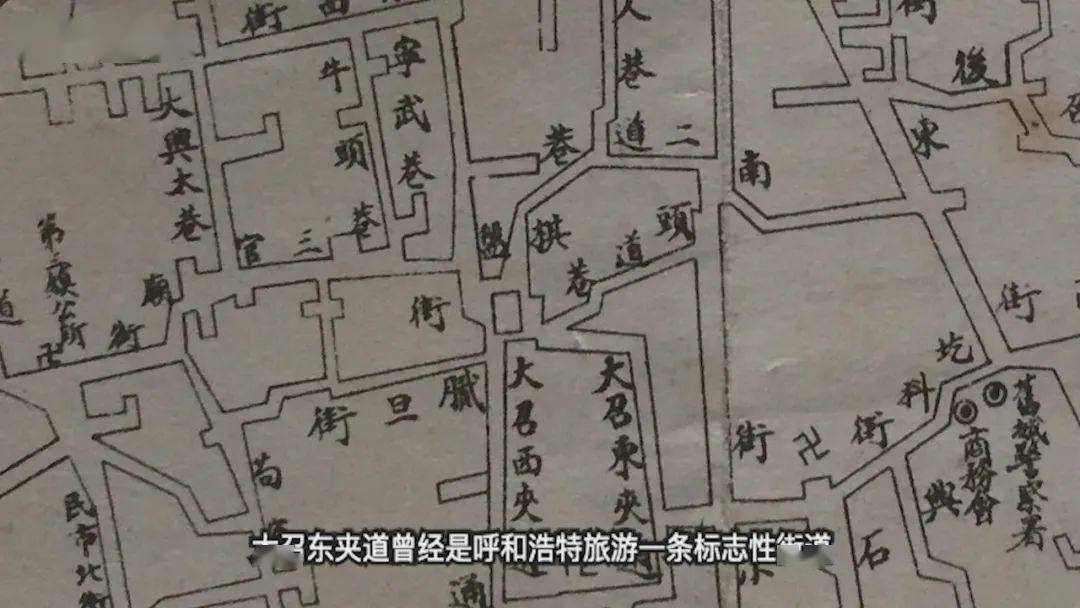 寧武巷
牛頭巷
大興太巷
三官
廟街
第三鎮公所
卍
街
膩旦街
苟
民市北街
通
人巷
二道巷
頭道巷
棋盤
大召西夾
大召東夾
南
街
東
後
街
召
街
圪科街
卍
興
石
舊城警察署
商務會
大召东夹道曾经是呼和浩特旅游一条标志性街道